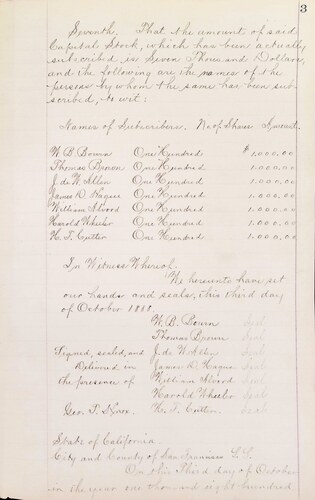 3
Seventh. That the amount of said
Capital Stock, which has been actually
subscribed is Seven Thousand Dollars,
and the following are the names of the
persons by whom the same has been sub-
scribed, to wit:
Names of Subscribers. No of Shares Amount.
W. B. Bourn One Hundred $1,000.00
Thomas Brown One Hundred 1,000.00
J. de W. Allen One Hundred 1,000.00
James D. Hague One Hundred 1,000.00
William Alvord One Hundred 1,000.00
Harold Wheeler One Hundred 1,000.00
H. T. Cutter One Hundred 1,000.00
In Witness Whereof,
We hereunto have set
our hands and seals, this third day
of October 1888.
W. B. Bourn Seal
Thomas Brown Seal
Signed, sealed, and J. de W. Allen Seal
Delivered in James D. Hague Seal
the presence of William Alvord Seal
Harold Wheeler Seal
Geo. T. Knox. H. T. Cutter Seal
State of California
City and County of San Francisco S.S.
On this Third day of October
in the year one thousand eight hundred